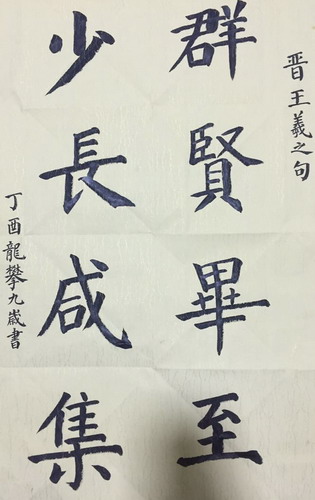 晋王羲之句
群賢畢至
少長咸集
丁酉龍攀九歲書